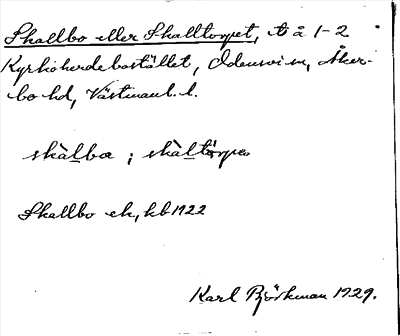 Skallbo eller Skalltorpet, t å 1-2
Kyrkoherdebostället, Odensvi sn, Åker-
bo hd, Västmanl. l.
skàlba ; skàltårpe
Skallbo ek, kb 1922
Karl Björkman 1929.